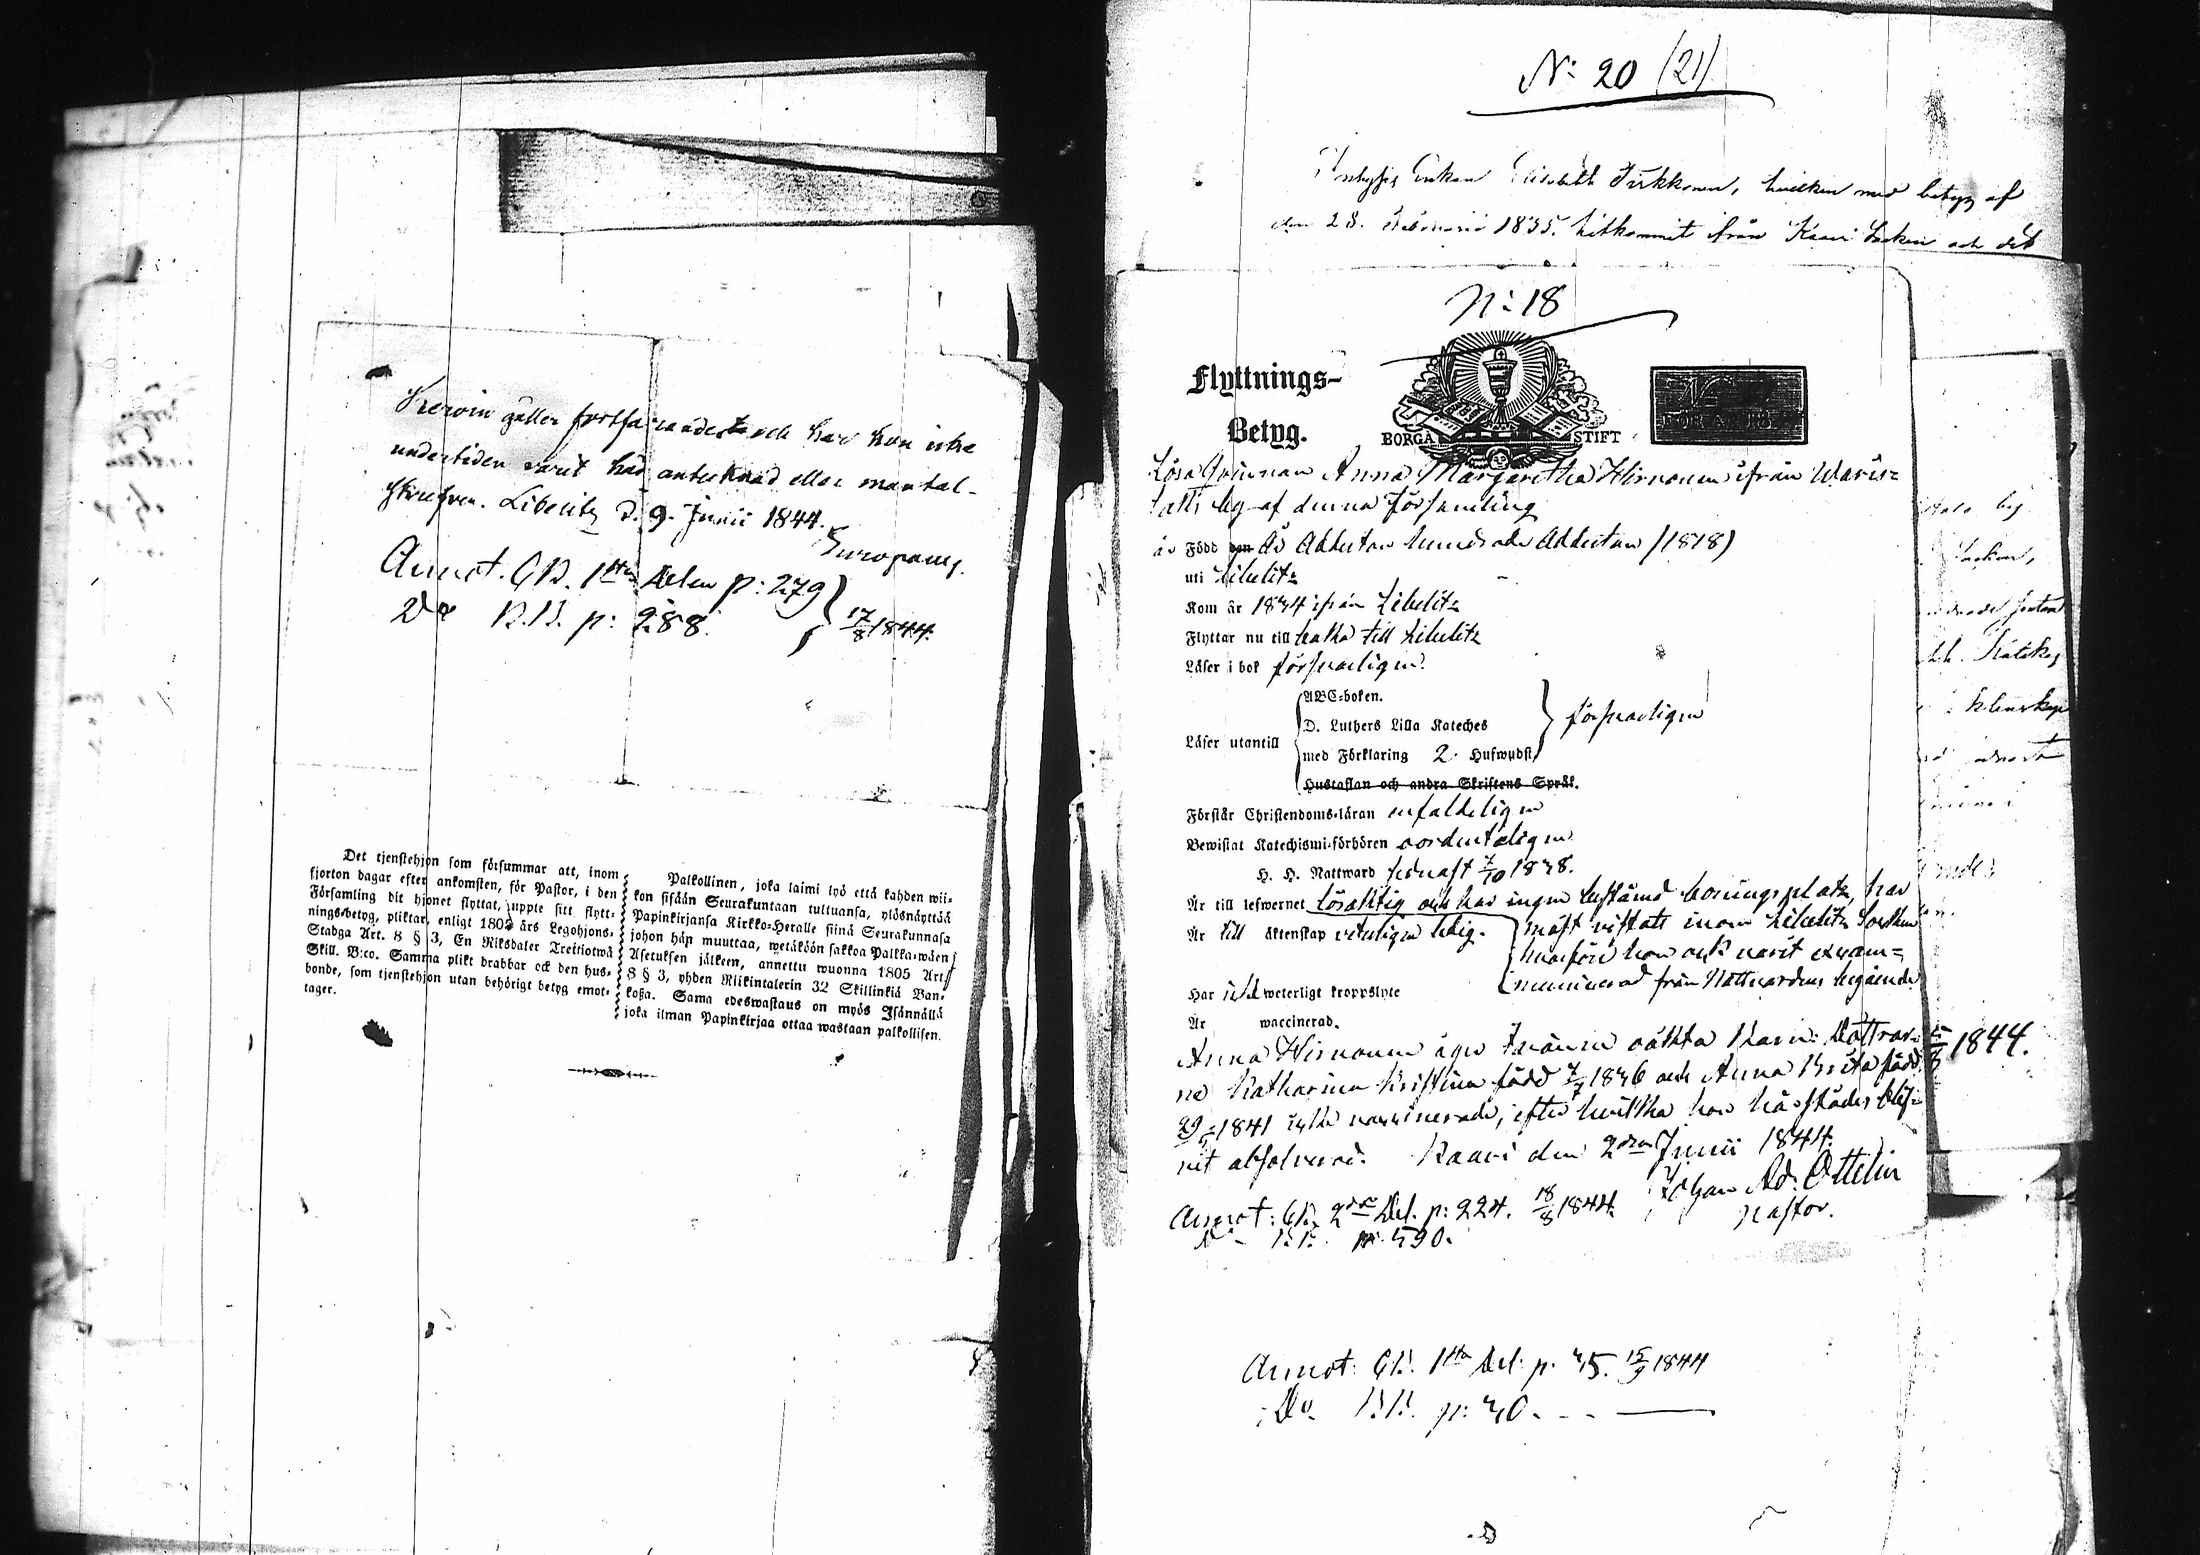 gäller fortfarande och har hon icke
undertiden varit här antecknad eller mantal-
skrifven. Libelitz d. 9. Junii 1844.
Europaeus.
Annot. CB. 1sta Delen p: 279
Do B.B. p: 288. 17/8 1844.
Det tjenstehjon som försummar att, inom
fjorton dagar efter ankomsten, för Pastor, i den
Församling dit hjonet flyttat, uppte sitt flytt-
nings-betyg, pliktar, enligt 1805 års Legohjons-
Stadga Art. 8 § 3, En Riksdaler Trettiotwå
Skill. B:co. Samma plikt drabbar ock den hus-
bonde, som tjenstehjon utan behörigt betyg emot-
tager.
Palkollinen, joka laimi lyö että kahden wii-
kon sisään Seurakuntaan tultuansa, ylösnäyttää
Papinkirjansa Kirkko-Heralle siinä Seurakunnasa
johon hän muuttaa, wetäköön sakkoa Palkka-wäen
Asetuksen jälkeen, annettu wuonna 1805 Art.
8 § 3, yhden Riikintalerin 32 Skillinkiä Ban-
koßa. Sama edeswastaus on myös Isännällä
joka ilman Papinkirjaa ottaa wastaan palkollisen.
N: 20 (21)
Enkan Elisabeth Turkkonen, hvilken med betyg af
den 28. 1835. hitkommit ifrån Kaavi Socken och det
N: 18
Flyttnings-
Betyg.
BORGÅ STIFT
Lösa Qvinnan Anna Margaretha Hirvonen ifrån Waris-
by af denna församling
är Född den År Aderton hundrade Aderton (1818)
uti Libelitz
Kom år 1834 ifrån Libelitz
Flyttar nu till baka till Libelitz
Läser i bok försvarligen.
Läser utantill
ABC-boken.
D. Luthers Lilla Kateches
med Förklaring 2. Hufwudst.
Hustaflan och andra Skriftens Språk.
försvarligen
Förstår Christendoms-läran enfaldeligen
Bewistat Katechismi-förhören oordenteligen
H. H. Nattward senast 7/10 1838.
Är till lefwernet lösaktig och har ingen bestämd boningsplats, har
Är till Äktenskap veterligen ledig. mäst vistats inom Libelitz Socken
hvarföre hon ock varit exkom-
municerad från Nattvardens begående
Har icke weterligt kroppslyte
Är waccinerad.
Anna Hirvonen äger tvänne oäkta Barn: Döttrar-
na Katharina Kristina född 7/7 1836 och Anna Brita född
1841 icke vaccinerade, efter hvilka hon härstädes blif-
vit absolverad. Kaavi den 2dra Junii 1844.
Johan Ad. Ottelin
Pastor.
1844.
Annot: CB. 2dra Del. p: 224. 18/8 1844.
Annot: CB. 1sta Del: p. 45. 15/9 1844
Do. B.B. p: 40.